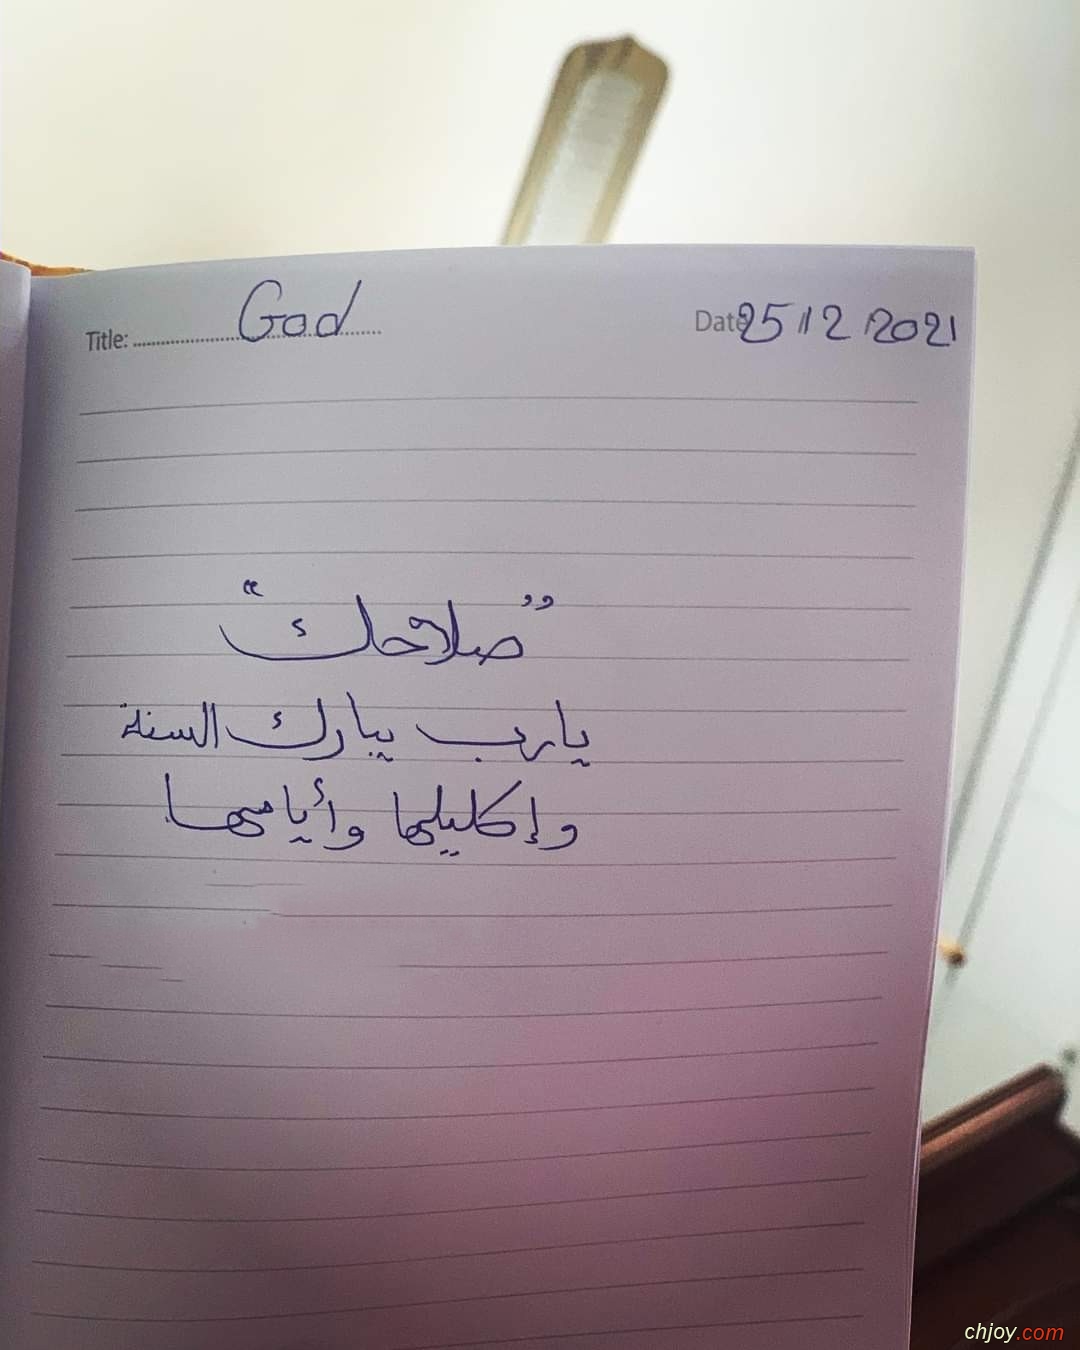 Title: God
Date 25/12/2021
"صلاحك"
يارب يبارك السنة
وإكليلها وأيامها
chjoy.com